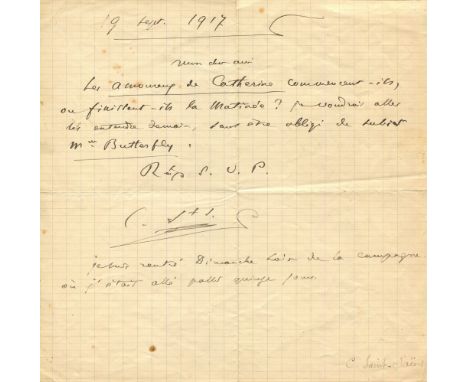 19 Sept. 1917
Mon cher ami
Les amoureux de Catherine commencent-ils,
ou finissent-ils la Matinée ? je voudrais aller
les entendre demain, sans être obligé de subir
Mme Butterfly.
Rép S. V. P.
C. St S.
je suis rentré Dimanche soir de la campagne
où j'étais allé passer quinze jours.
C. Saint-Saëns